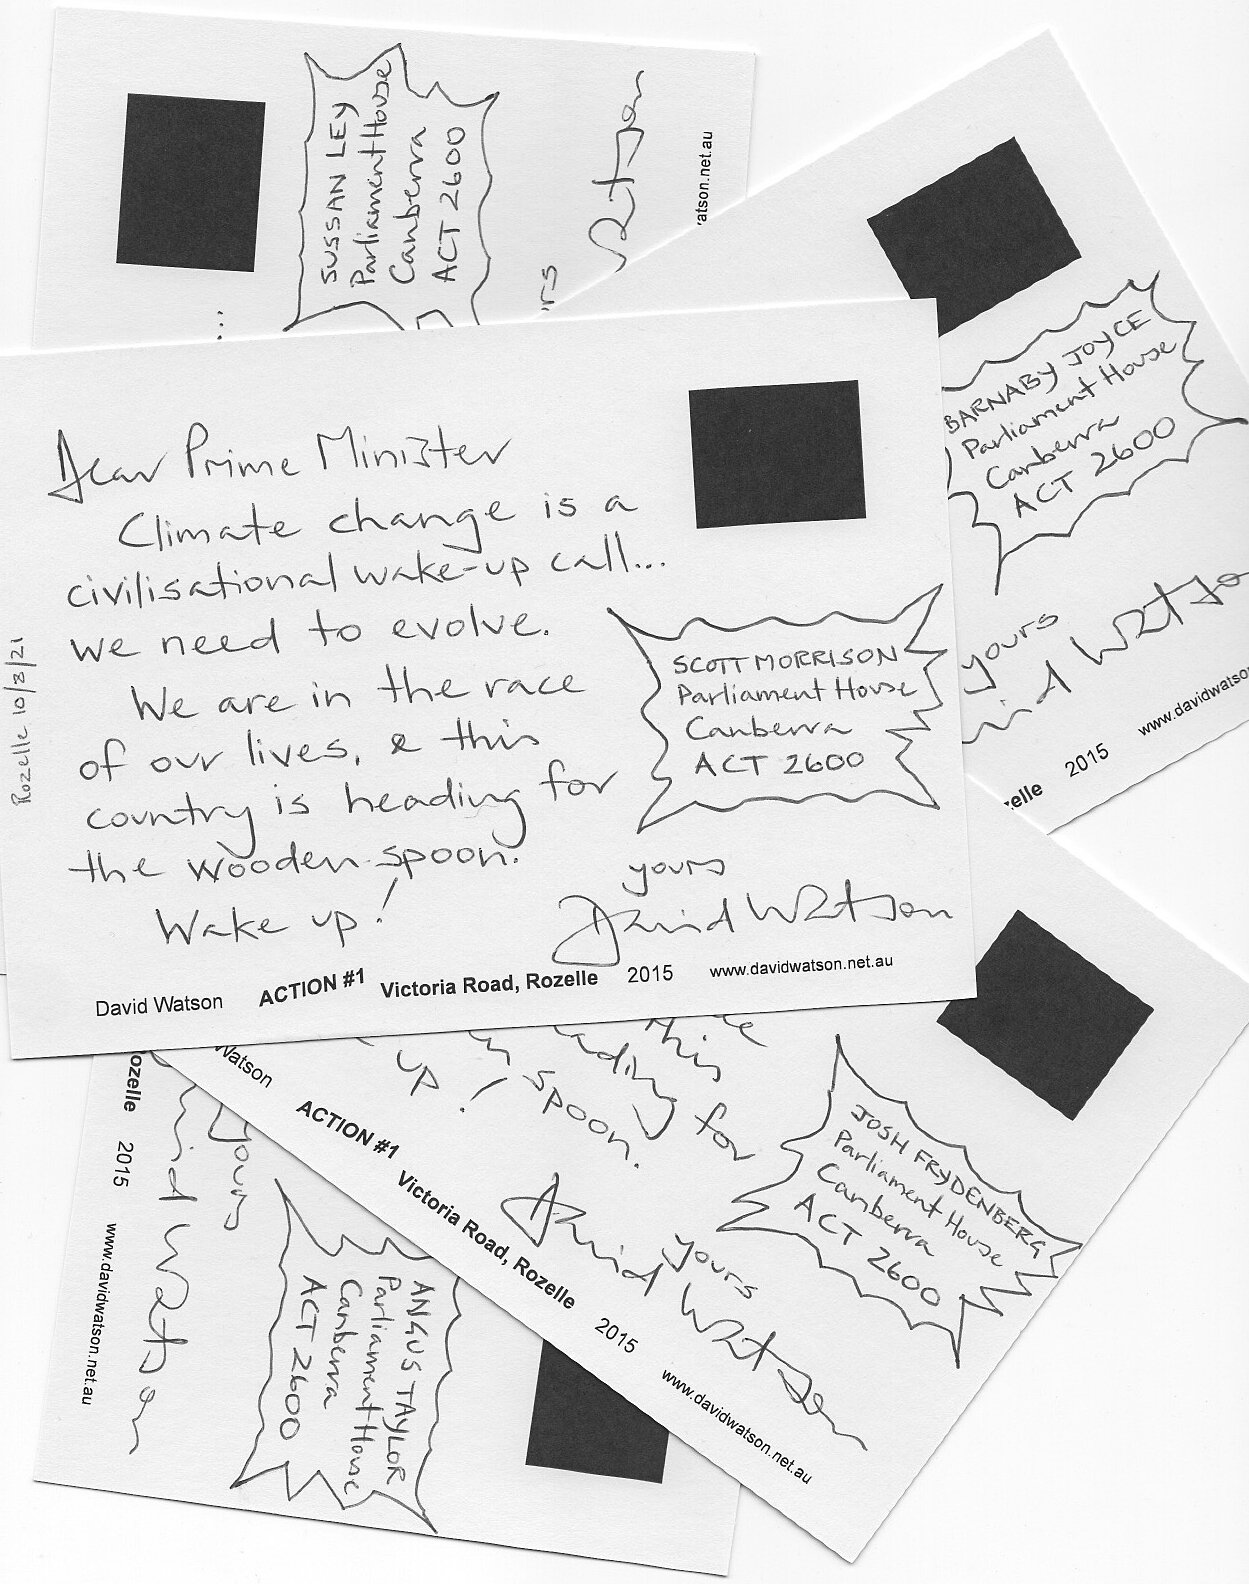 SUSSAN LEY
Parliament House
Canberra
ACT 2600
Watson
...
BARNABY JOYCE
Parliament House
Canberra
ACT 2600
yours
Watso
2015
www.davidwatso
zelle
Dear Prime Minister
Climate change is a
civilisational wake-up call...
we need to evolve.
We are in the race
of our lives, & this
country is heading for
the wooden spoon.
Wake up!
Rozelle 10/2/21
SCOTT MORRISON
Parliament House
Canberra
ACT 2600
yours
David Watson
David Watson ACTION #1 Victoria Road, Rozelle 2015 www.davidwatson.net.au
this
for
spoon.
up!
JOSH FRYDENBERG
Parliament House
Canberra
ACT 2600
yours
David Watson
Watson ACTION #1 Victoria Road, Rozelle 2015 www.davidwatson.net.au
ANGUS TAYLOR
Parliament House
Canberra
ACT 2600
yours
Watson
ozelle 2015 www.davidwatson.net.au
atson.net.au